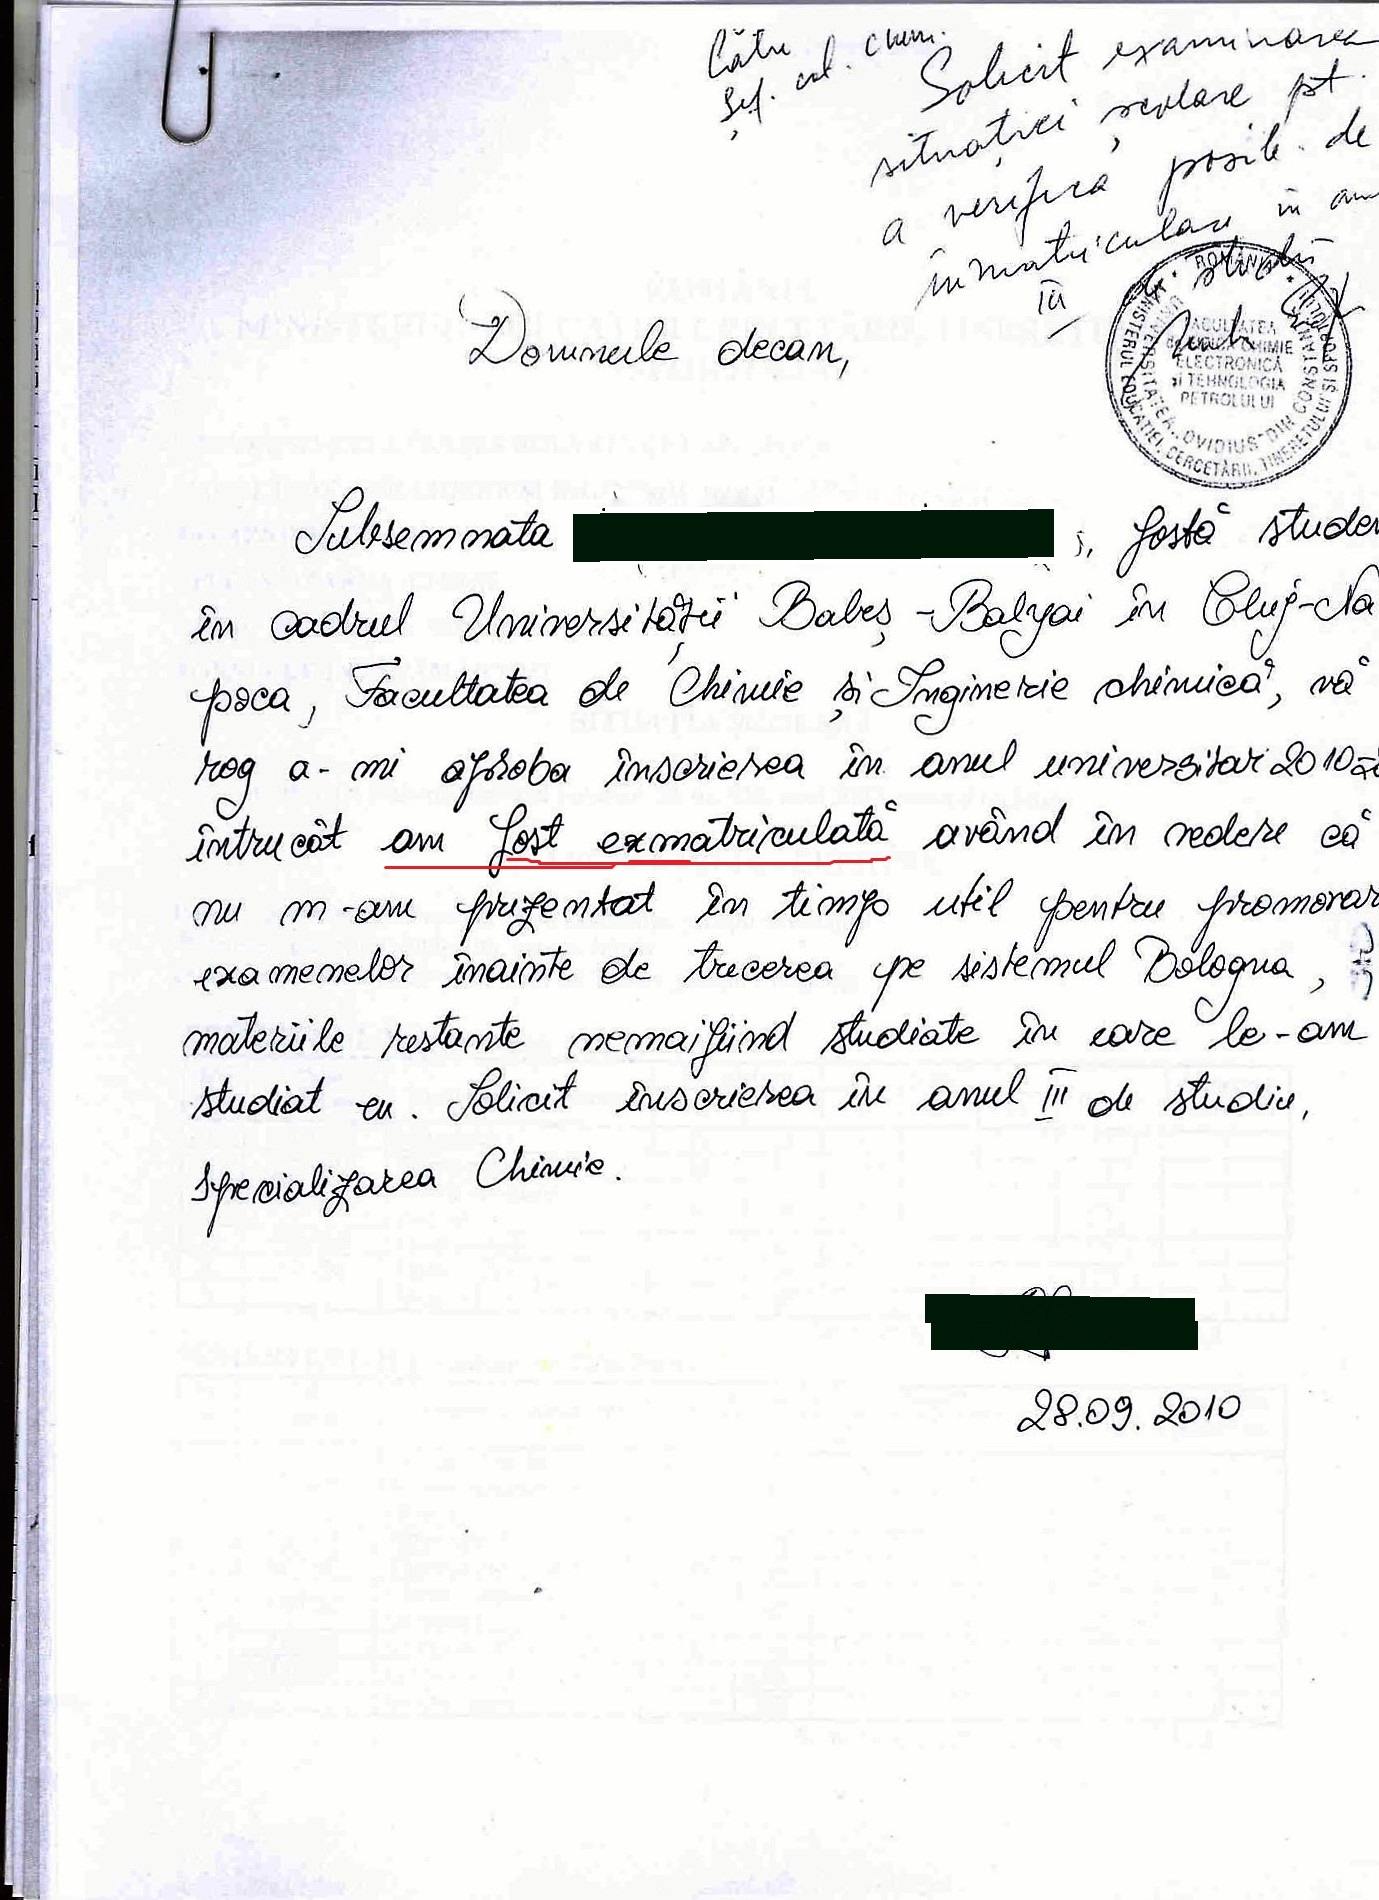 Către
Șef. col. chim.
Solicit examinarea
situației școlare pt.
a verifica posib. de
înmatriculare în anul
III studii
ROMÂNIA
MINISTERUL EDUCAȚIEI, CERCETĂRII, TINERETULUI ȘI SPORTULUI
UNIVERSITATEA „OVIDIUS" DIN CONSTANȚA
FACULTATEA
CHIMIE
ELECTRONICĂ
ȘI TEHNOLOGIA
PETROLULUI
Domnule decan,
Subsemnata , fostă studen
în cadrul Universității Babeș-Bolyai în Cluj-Na
poca, Facultatea de Chimie și Inginerie chimică, vă
rog a-mi aproba înscrierea în anul universitar 2010-
întrucât am fost exmatriculată având în vedere că
nu m-am prezentat în timp util pentru promovar
examenelor înainte de trecerea pe sistemul Bologna,
materiile restante nemaifiind studiate în care le-am
studiat eu. Solicit înscrierea în anul III de studiu,
specializarea Chimie.
28.09.2010